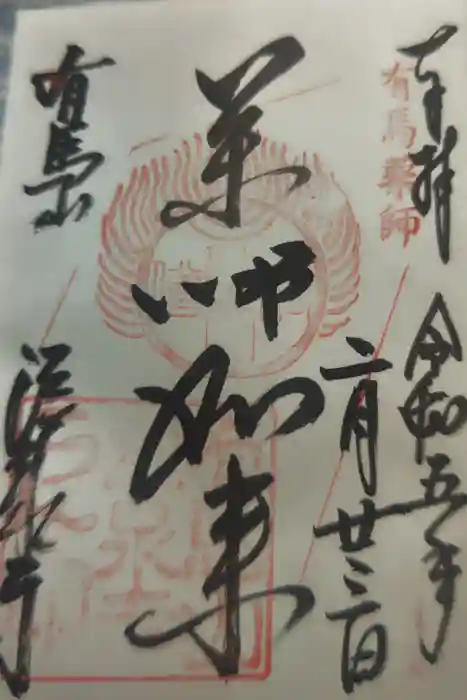 奉拝
有馬薬師
令和五年
二月廿三日
薬師如来
有馬山
温泉寺